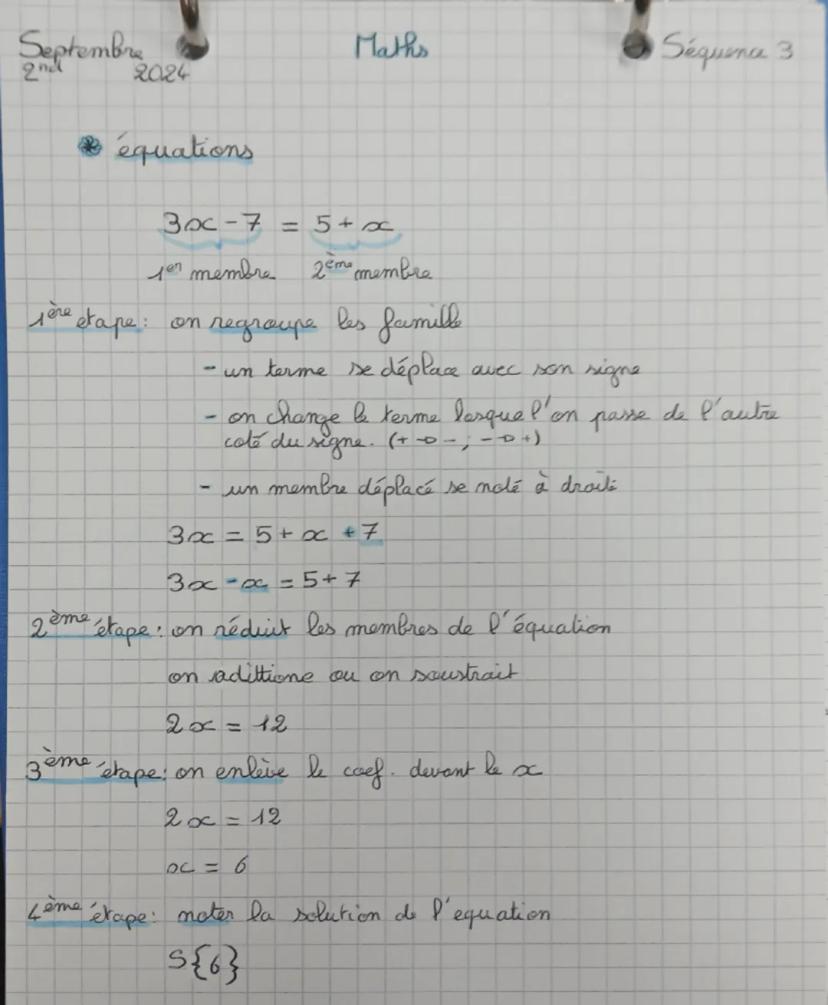 Septembre Maths Séquence 3
2nd 2024
* équations
3x - 7 = 5 + x
1er membre 2ème membre
1ère étape : on regroupe les famille
- un terme se déplace avec son signe
- on change le terme lorsque l'on passe de l'autre
coté du signe. (+ → - ; - → +)
- un membre déplacé se note à droite
3x = 5 + x + 7
3x - x = 5 + 7
2ème étape : on réduit les membres de l'équation
on adittione ou on soustrait
2x = 12
3ème étape : on enlève le coef. devant le x
2x = 12
x = 6
4ème étape : noter la solution de l'equation
S{6}